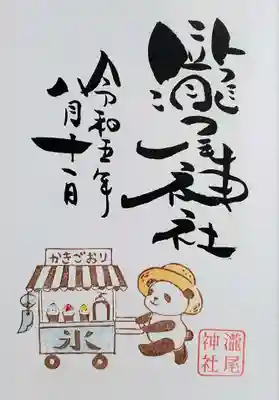 瀧尾神社
令和五年
八月十一日
かきごおり
氷
瀧尾
神社